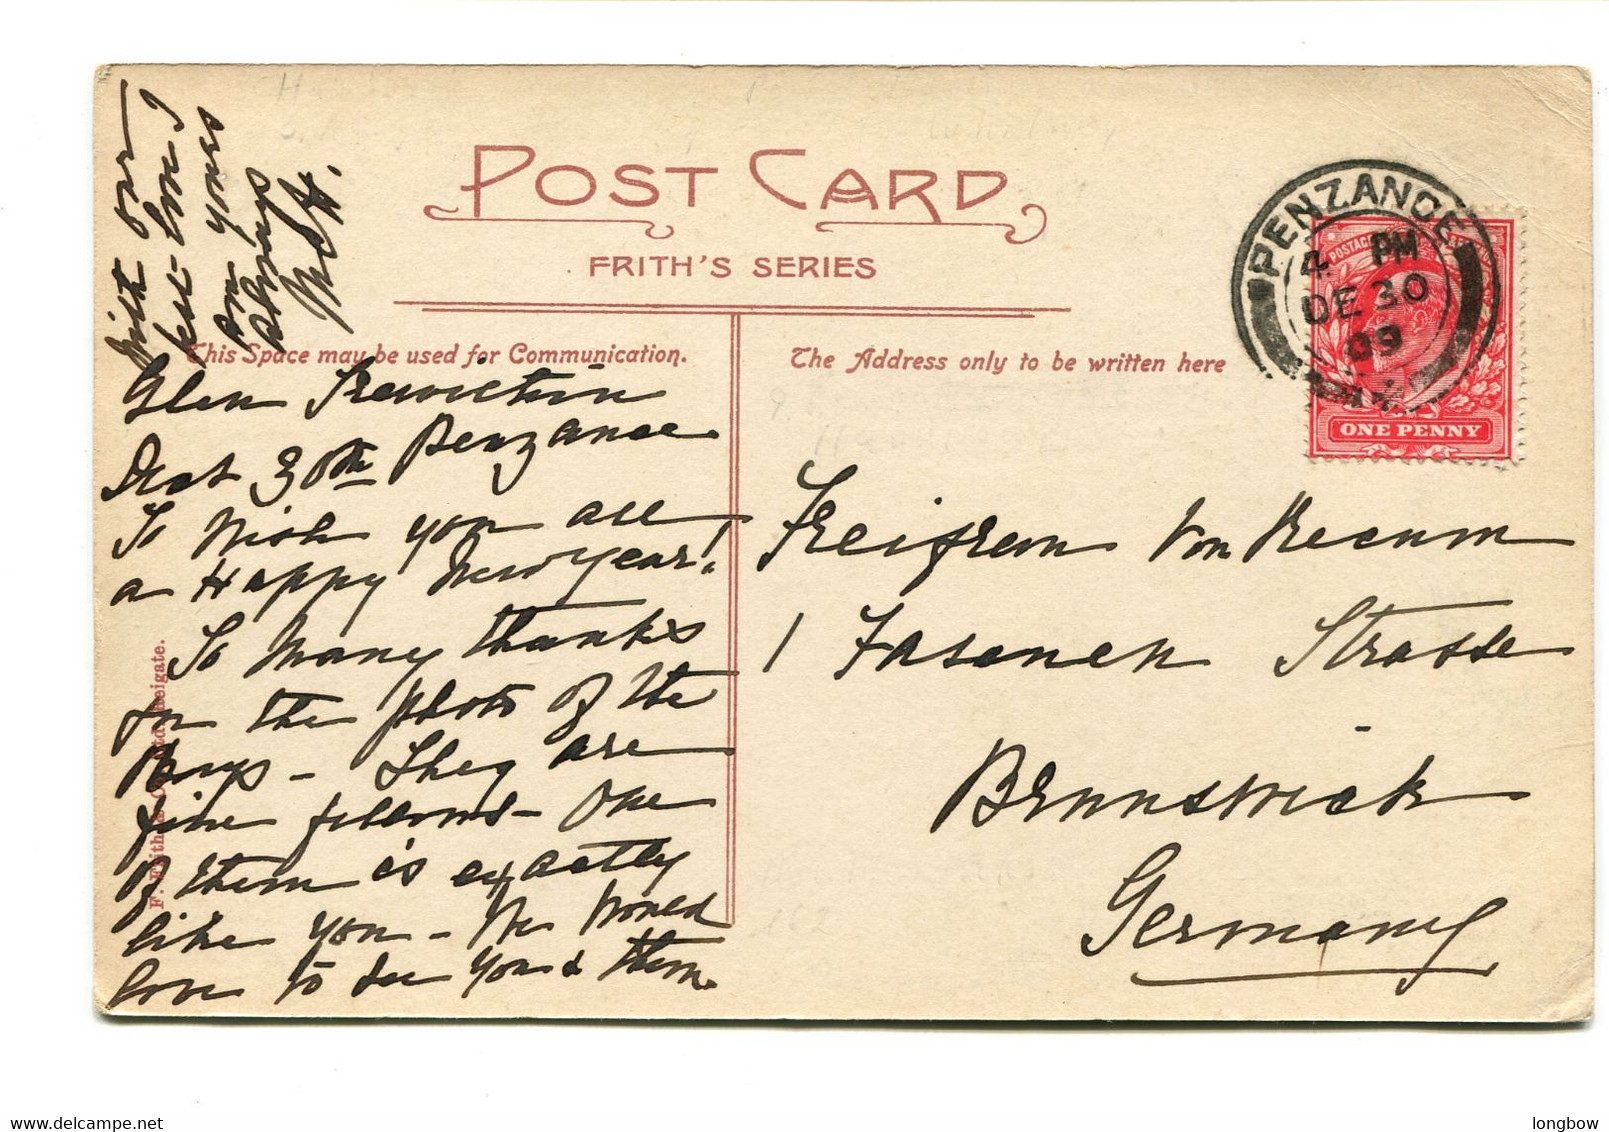 POST CARD
FRITH'S SERIES
This Space may be used for Communication.
The Address only to be written here
PENZANCE
4 PM
DE 30
09
POSTAGE
ONE PENNY
Glen
Dec 30th Penzance
To wish you all
a Happy New Year!
So Many thanks
for the photo of the
Boys - They are
fine fellows - One
of them is exactly
like you - We would
love to see you & them.
With our
best love I
am yours
always
Freifrau Von Recum
1 Fasanen Strasse
Brunswick
Germany
F. Frith &
Reigate.
longbow